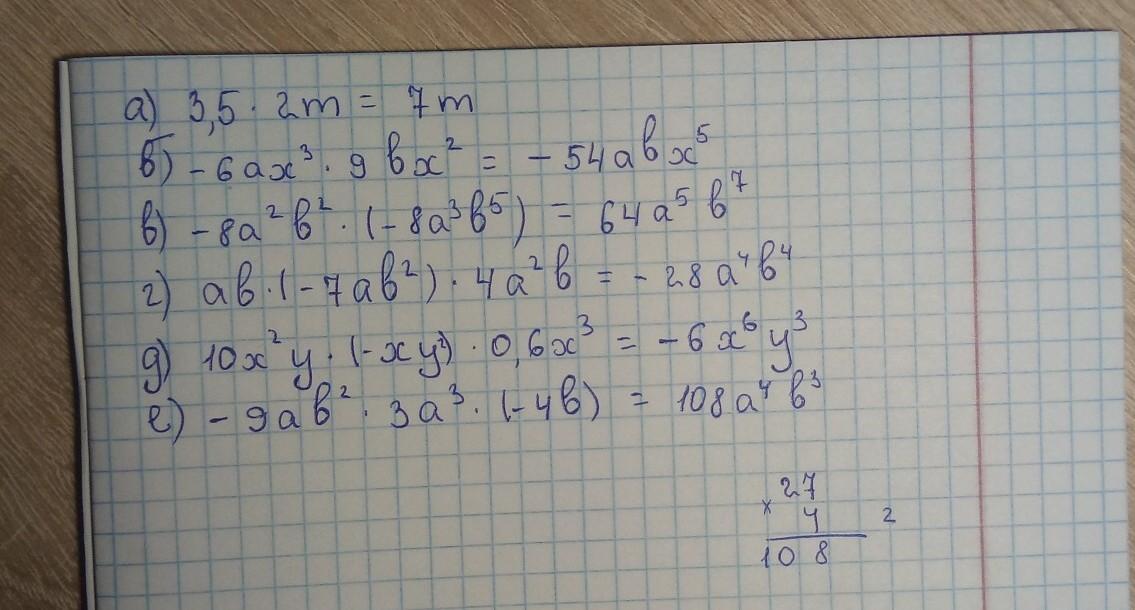 а) 3,5 · 2m = 7m
б) -6ax³ · 9bx² = -54abx⁵
в) -8a²b² · (-8a³b⁵) = 64a⁵b⁷
г) ab · (-7ab²) · 4a²b = -28a⁴b⁴
д) 10x²y · (-xy²) · 0,6x³ = -6x⁶y³
е) -9ab² · 3a³ · (-4b) = 108a⁴b³
27
× 4 2
108